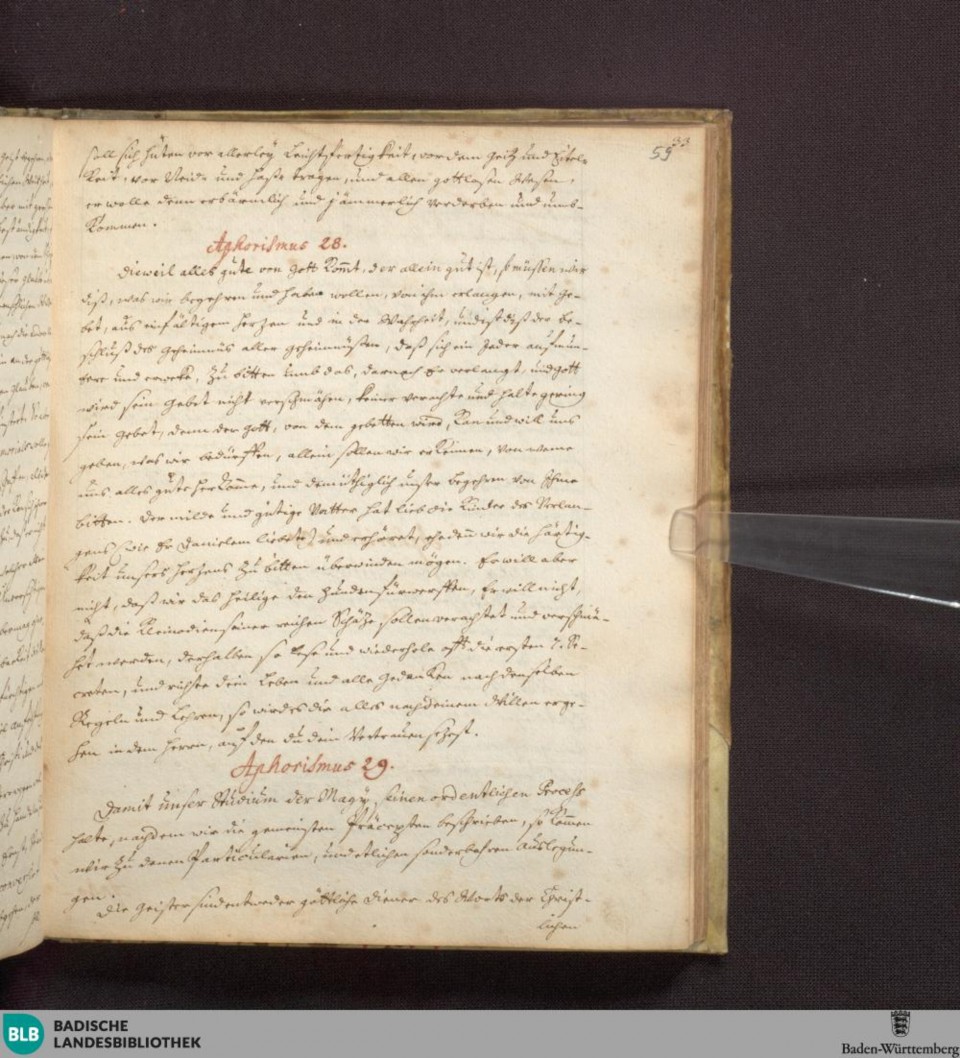 33
59
soll sich hüten vor allerley Leichtfertigkeit, vor dem Geitz und Eitel-
keit, vor Neid- und Haße tragen, und allen gottlosen Wesen,
er wolle denn erbärmlich und jämmerlich verderben und umb-
kommen.
Aphorismus 28.
Dieweil alles gute von Gott komt, der allein gut ist, so müssen wir
diß, was wir begehren und haben wollen, von ihm erlangen, mit ge-
bet, aus einfältigem Herzen und in der Wahrheit, und ist daß der be-
schluß des geheimnüs aller geheimnüßen, daß sich ein Jeder aufmun-
tere und erwecke, zu bitten umb das, darnach Er verlangt, und Gott
wird sein Gebet nicht verschmähen, keiner verachte und halte gering
sein gebet, denn der Gott, von dem gebetten wird, kan und will uns
geben, was wir bedürffen, allein sollen wir erkennen, von weme
uns alles gutes herkome, und demüthiglich unser begehren von Ihme
bitten. Der milde und gütige Vatter hat lieb die Kinder des Verlan-
gens wie Er Danielem liebet, und erhöret, ehe denn wir die härtig-
keit unsers Herzens zu bitten überwinden mögen. Er will aber
nicht, daß wir das heilige den Hunden fürwerffen, Er will nicht,
daß die Kleinodien seiner reichen Schätze sollen verachtet und verschmä-
het werden, derhalben so lese und wiederhole offt die ersten 7. Se-
creten, und richte dein Leben und alle Gedanken nach denselben
Regeln und Lehren, so wird es dir alles nach deinem Willen erge-
hen in dem Herrn, auf den du dein Vertrauen setzest.
Aphorismus 29.
Damit unser Studium der Magy seinen ordentlichen Process
halte, nachdem wir die gemeinsten Präcepten beschrieben, so kommen
wir zu denen Particularien, und etlichen sonderbahren Auslegun-
gen.
Die Geister sind entweder göttliche Diener des Worts der Christ-
lichen
BLB
BADISCHE
LANDESBIBLIOTHEK
Baden-Württemberg